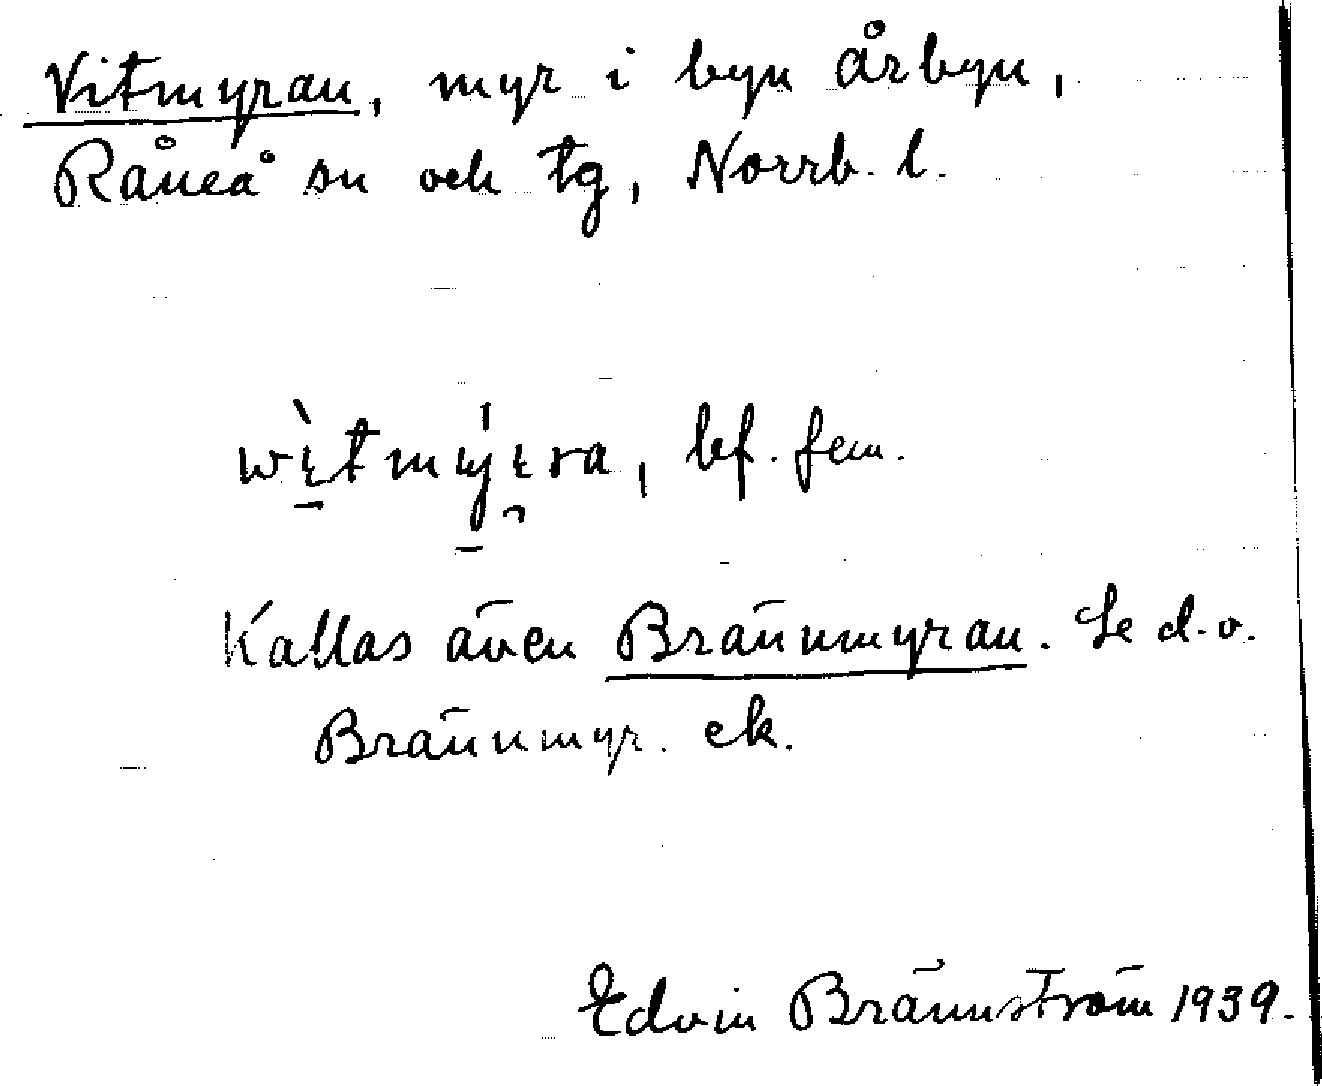 Vitmyran, myr i byn Årbyn,
Råneå sn och tg, Norrb. l.
bf. fem.
Kallas även Brännmyran. Se d.o.
Brännmyr. ek.
Edvin Brännström 1939.